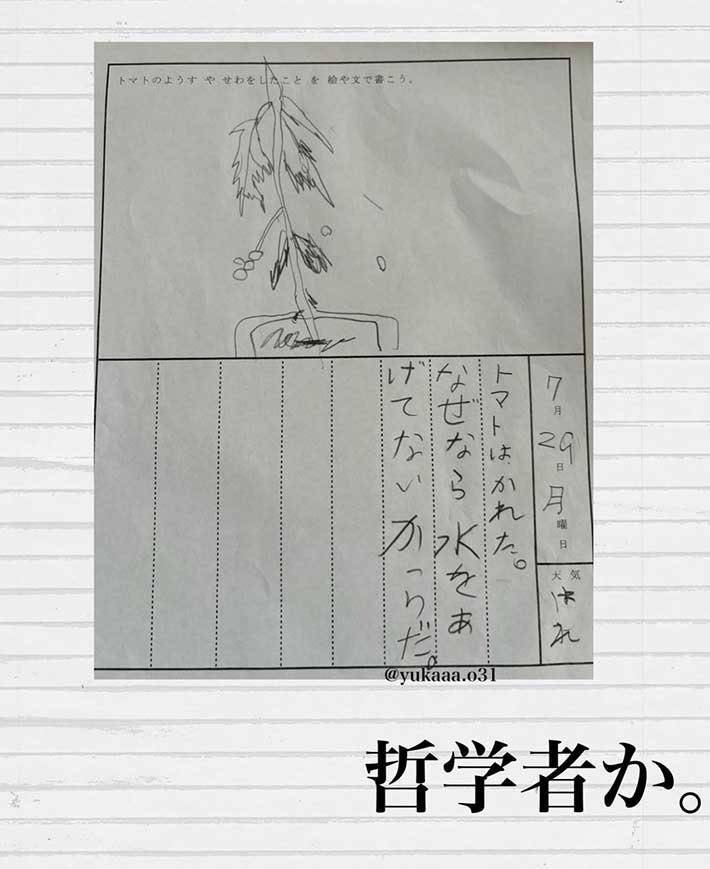 トマトのようす や せわをしたこと を 絵や文で書こう。
7月29日月曜日
天気
はれ
トマトは、かれた。
なぜなら水をあ
げてないからだ。
@yukaaa.o31
哲学者か。